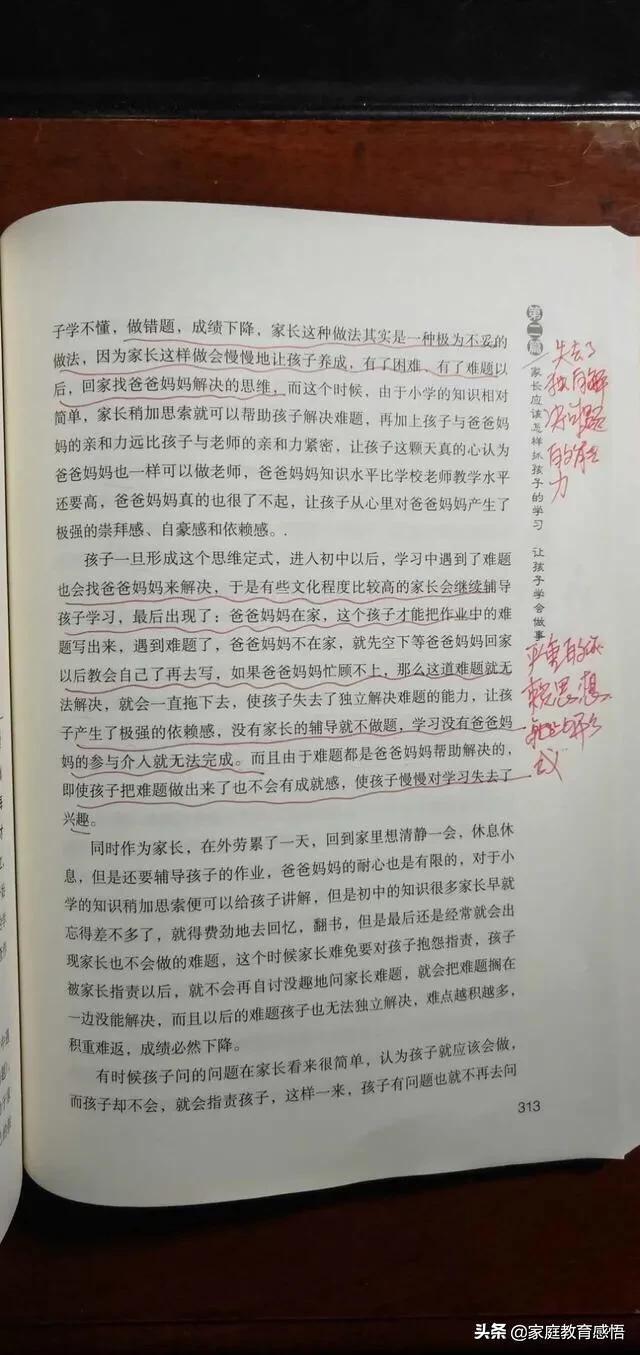 子学不懂，做错题，成绩下降，家长这种做法其实是一种极为不妥的
做法，因为家长这样做会慢慢地让孩子养成，有了困难、有了难题以
后，回家找爸爸妈妈解决的思维，而这个时候，由于小学的知识相对
简单，家长稍加思索就可以帮助孩子解决难题，再加上孩子与爸爸妈
妈的亲和力远比孩子与老师的亲和力紧密，让孩子这颗天真的心认为
爸爸妈妈也一样可以做老师，爸爸妈妈知识水平比学校老师教学水平
还要高，爸爸妈妈真的也很了不起，让孩子从心里对爸爸妈妈产生了
极强的崇拜感、自豪感和依赖感。.
孩子一旦形成这个思维定式，进人初中以后，学习中遇到了难题
也会找爸爸妈妈来解决，于是有些文化程度比较高的家长会继续辅导
孩子学习，最后出现了：爸爸妈妈在家，这个孩子才能把作业中的难
题写出来，遇到难题了，爸爸妈妈不在家，就先空下等爸爸妈妈回家
以后教会自己了再去写，如果爸爸妈妈忙顾不上，那么这道难题就无
法解决，就会一直拖下去，使孩子失去了独立解决难题的能力，让孩
子产生了极强的依赖感，没有家长的辅导就不做题，学习没有爸爸妈
妈的参与介人就无法完成。而且由于难题都是爸爸妈妈帮助解决的，
即使孩子把难题做出来了也不会有成就感，使孩子慢慢对学习失去了
兴趣。
同时作为家长，在外劳累了一天，回到家里想清静一会，休息休
息，但是还要辅导孩子的作业，爸爸妈妈的耐心也是有限的，对于小
学的知识稍加思索便可以给孩子讲解，但是初中的知识很多家长早就
忘得差不多了，就得费劲地去回忆，翻书，但是最后还是经常就会出
现家长也不会做的难题，这个时候家长难免要对孩子抱怨指责，孩子
被家长指责以后，就不会再自讨没趣地问家长难题，就会把难题搁在
一边没能解决，而且以后的难题孩子也无法独立解决，难点越积越多，
积重难返，成绩必然下降。
有时候孩子问的问题在家长看来很简单，认为孩子就应该会做，
而孩子却不会，就会指责孩子，这样一来，孩子有问题也就不再去问
313
第二篇
家长应该怎样抓孩子的学习 让孩子学会做事
失去了
独自解
决问题
的能
力
的依
赖思想
头条 @家庭教育感悟